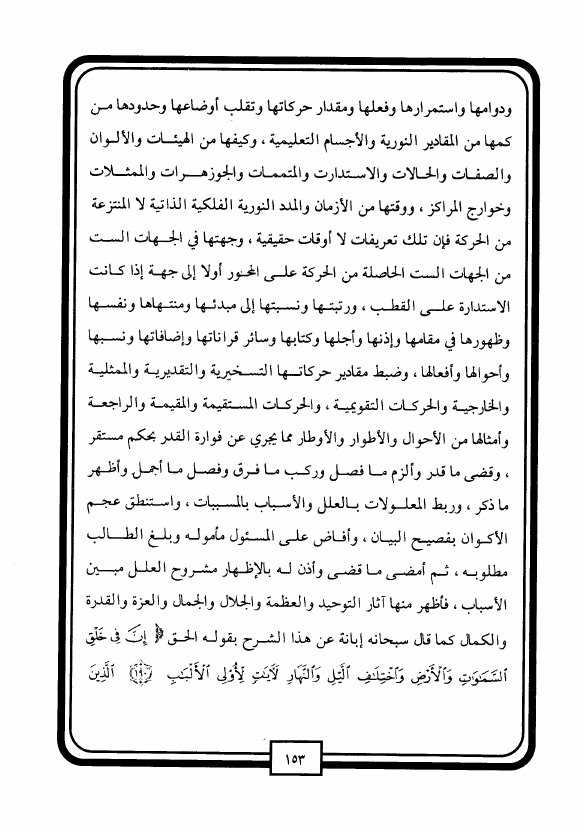 ودوامها واستمرارها وفعلها ومقدار حركاتها وتقلب أوضاعها وحدودها مـن
كمها من المقادير النورية والأجسام التعليمية ، وكيفها من الهيئـات والألـوان
والصفـات والحـالات والاسـتدارت والمتممـات والجوزهـرات والممثـلات
وخوارج المراكز ، ووقتها من الأزمان والمدد النورية الفلكية الذاتية لا المنتزعة
من الحركة فإن تلك تعريفات لا أوقات حقيقية ، وجهتها في الجـهات السـت
من الجهات الست الحاصلة من الحركة علـى المحـور أولا إلى جهة إذا كـانت
الاستدارة علـى القطـب ، ورتبتـها ونسبتها إلى مبدئـها ومنتـهاها ونفسـها
وظهورها في مقامها وإذنها وأجلها وكتابها وسائر قراناتها وإضافاتها ونسبها
وأحوالها وأفعالها ، وضبط مقادير حركاتـها التسـخيرية والتقديريـة والممثليـة
والخارجيـة والحركات التقويمية ، والحركات المسـتقيمة والمقيمـة والراجعـة
وأمثالها من الأحوال والأطوار والأوطار مما يجري عن فوارة القدر بحكم مستقر
، وقضى ما قدر وألزم مـا فصـل وركـب مـا فـرق وفصـل مـا أجمـل وأظـهر
ما ذكر ، وربط المعلـولات بـالعلل والأسـباب بالمسـببات ، واسـتنطق عجـم
الأكوان بفصيـح البيـان ، وأفـاض علـى المسئول مأمولـه وبلـغ الطـالب
مطلوبـه ، ثـم أمضـى مـا قضـى وأذن لـه بالإظـهار مشـروح العلـل مبـين
الأسباب ، فأظهر منها آثار التوحيد والعظمة والجلال والجمال والعزة والقدرة
والكمال كما قال سبحانه إبانة عن هذا الشرح بقولـه الحـق ﴿ إِنَّ فِي خَلْقِ
ٱلسَّمَـٰوَٰتِ وَٱلْأَرْضِ وَٱخْتِلَـٰفِ ٱلَّيْلِ وَٱلنَّهَارِ لَآيَـٰتٍ لِّأُو۟لِي ٱلْأَلْبَـٰبِ ﴿١٩٠﴾ ٱلَّذِينَ
١٥٣